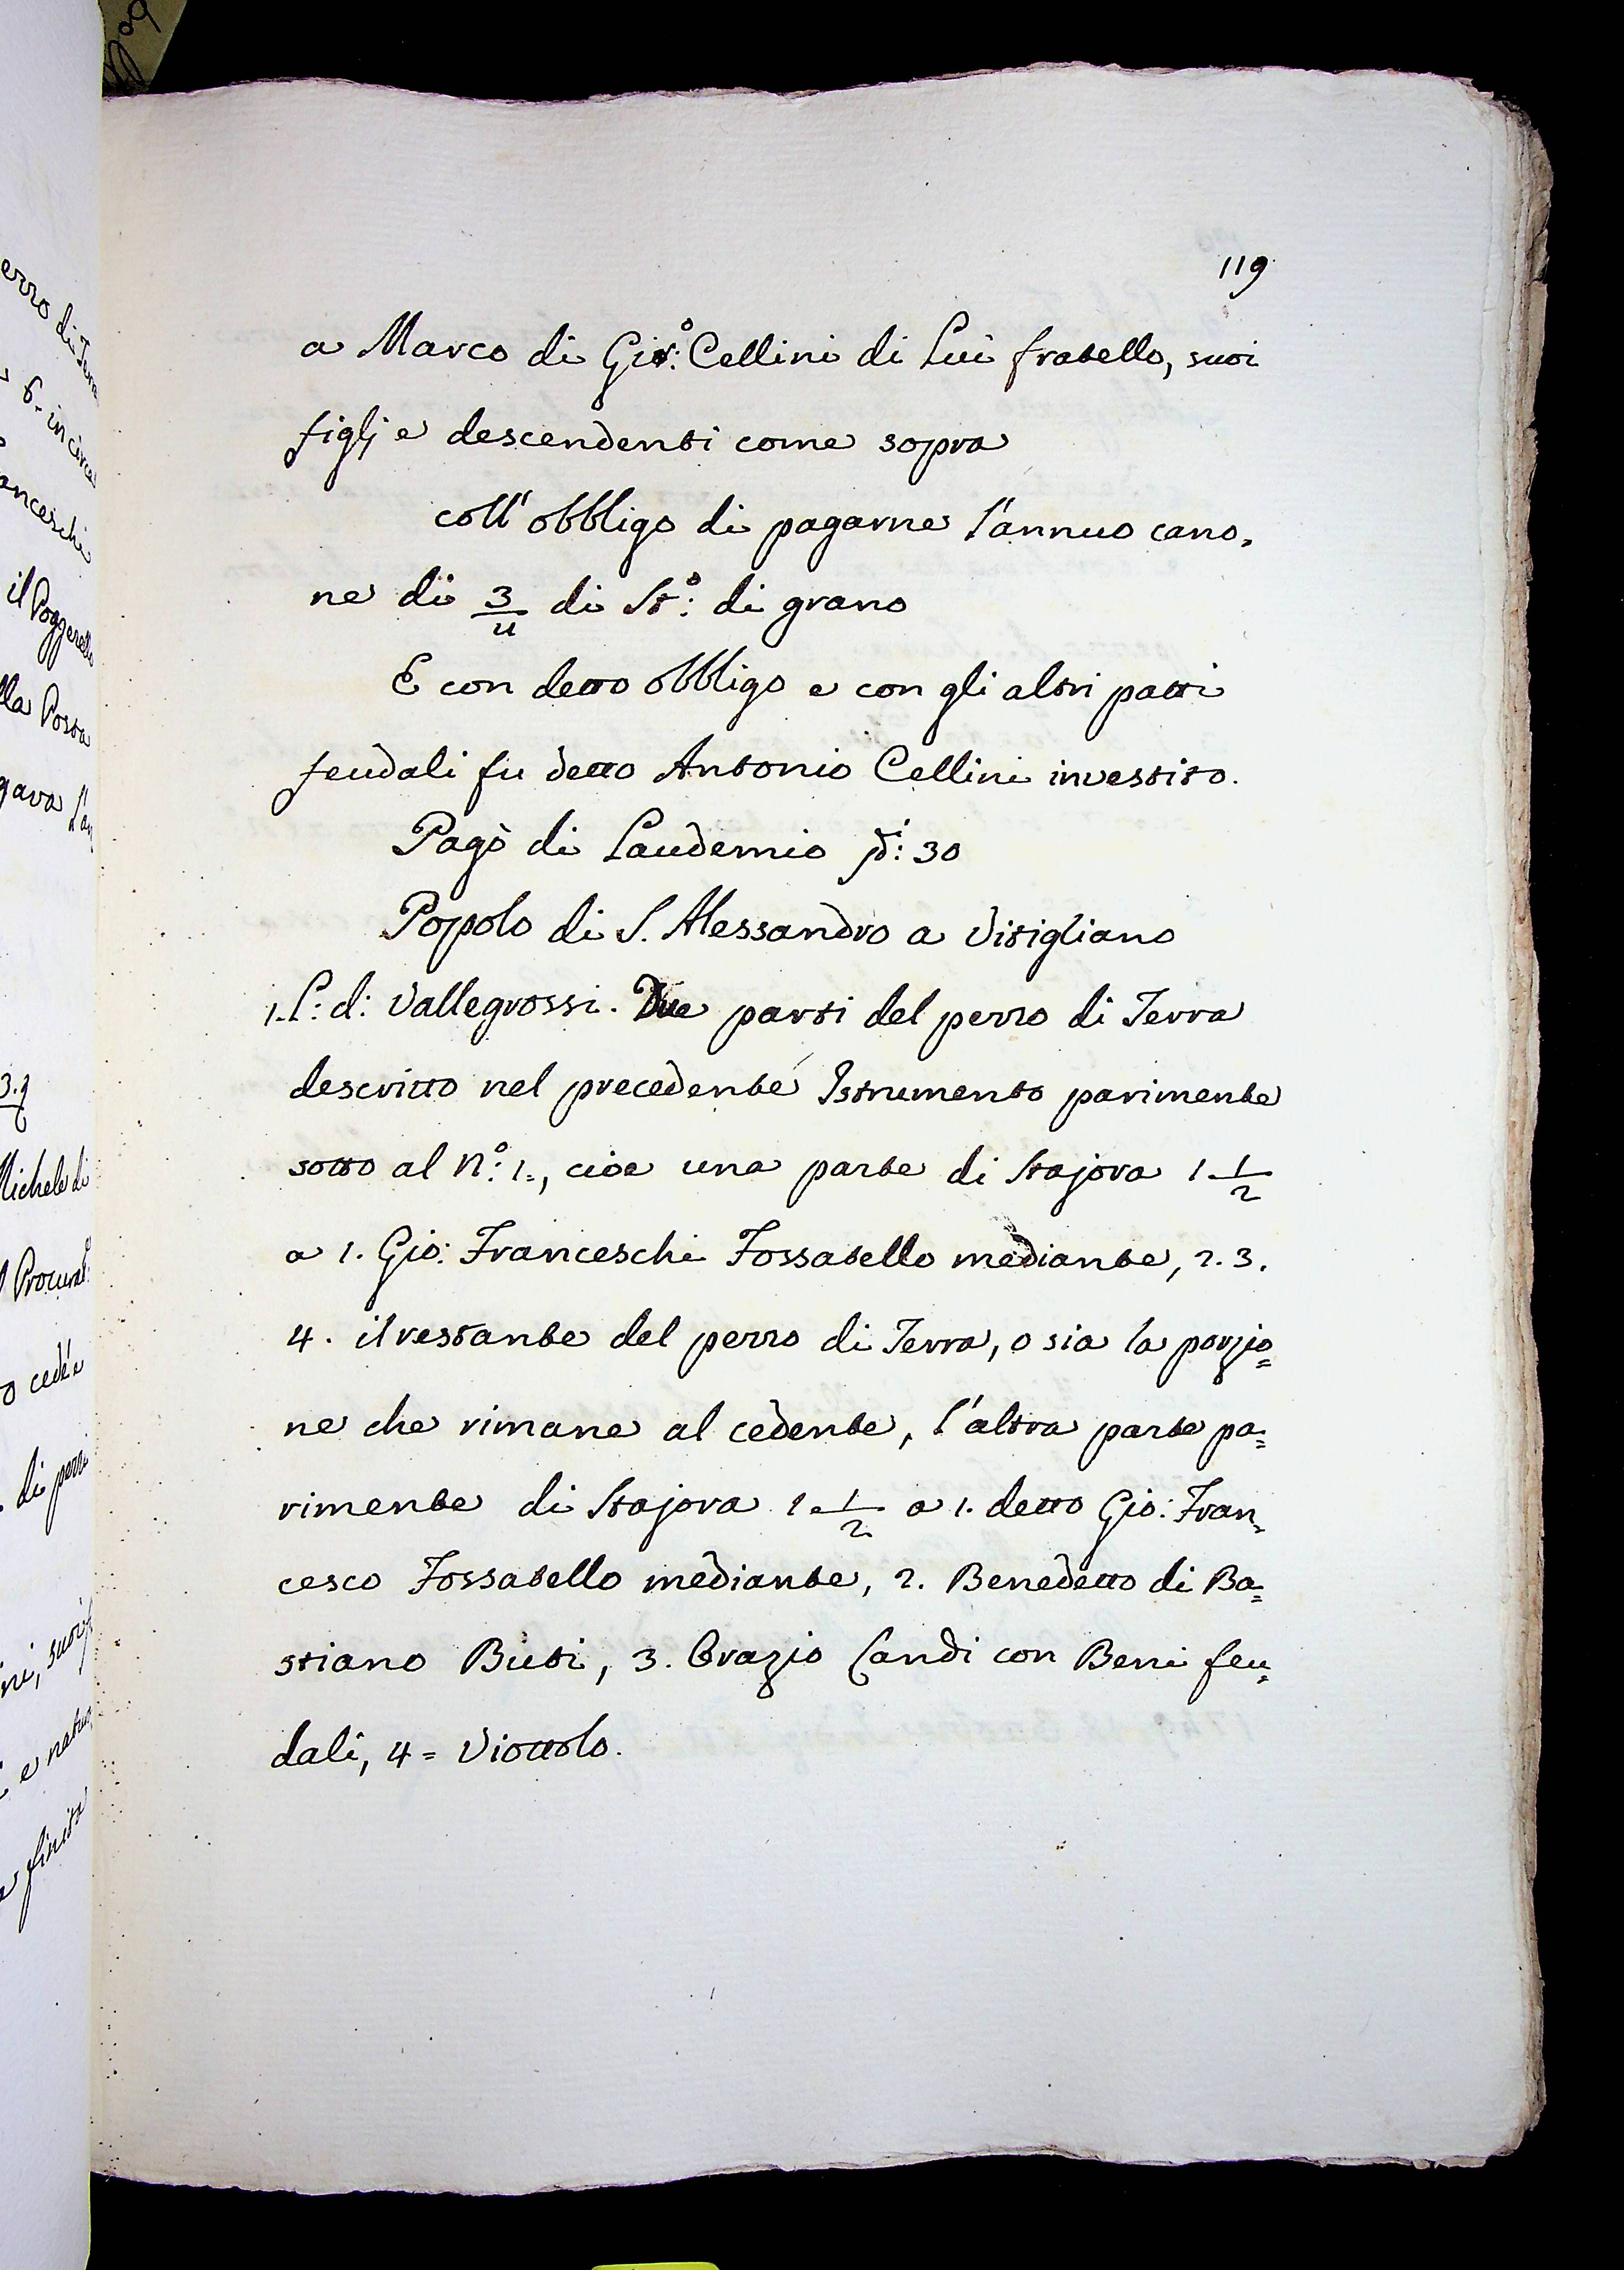 119
a Marco di Gio:° Cellini di Lui fratello, suoi
figlj e descendenti come sopra
coll'obbligo di pagarne l'annuo cano=
ne di 3/4 di St:° di grano
E con detto obbligo e con gli altri patti
feudali fu detto Antonio Cellini investito.
Pagò di Laudemio 30
Popolo di S. Alessandro a Vitigliano
1. L: d: Vallegrossi. Due parti del pezzo di Terra
descritto nel precedente Istrumento parimente
sotto al N:° 1=, cioe una parte di Stajora 1 1/2
a 1. Gio: Franceschi Fossatello mediante, 2. 3.
4. il restante del pezzo di Terra, o sia la porzio=
ne che rimane al cedente, l'altra parte pa=
rimente di Stajora 1 1/2 a 1. detto Gio: Fran=
cesco Fossatello mediante, 2. Benedetto di Ba=
stiano Buti, 3. Orazio Landi con Beni feu=
dali, 4= Viottolo.
erro di Terra
6. in circa
anceschi
il Poggerello
lla Posta
gava l'an
3.9
Michele di
l Procurat
o cedé a
di pezzi
ni, suoi
e natur
e finita